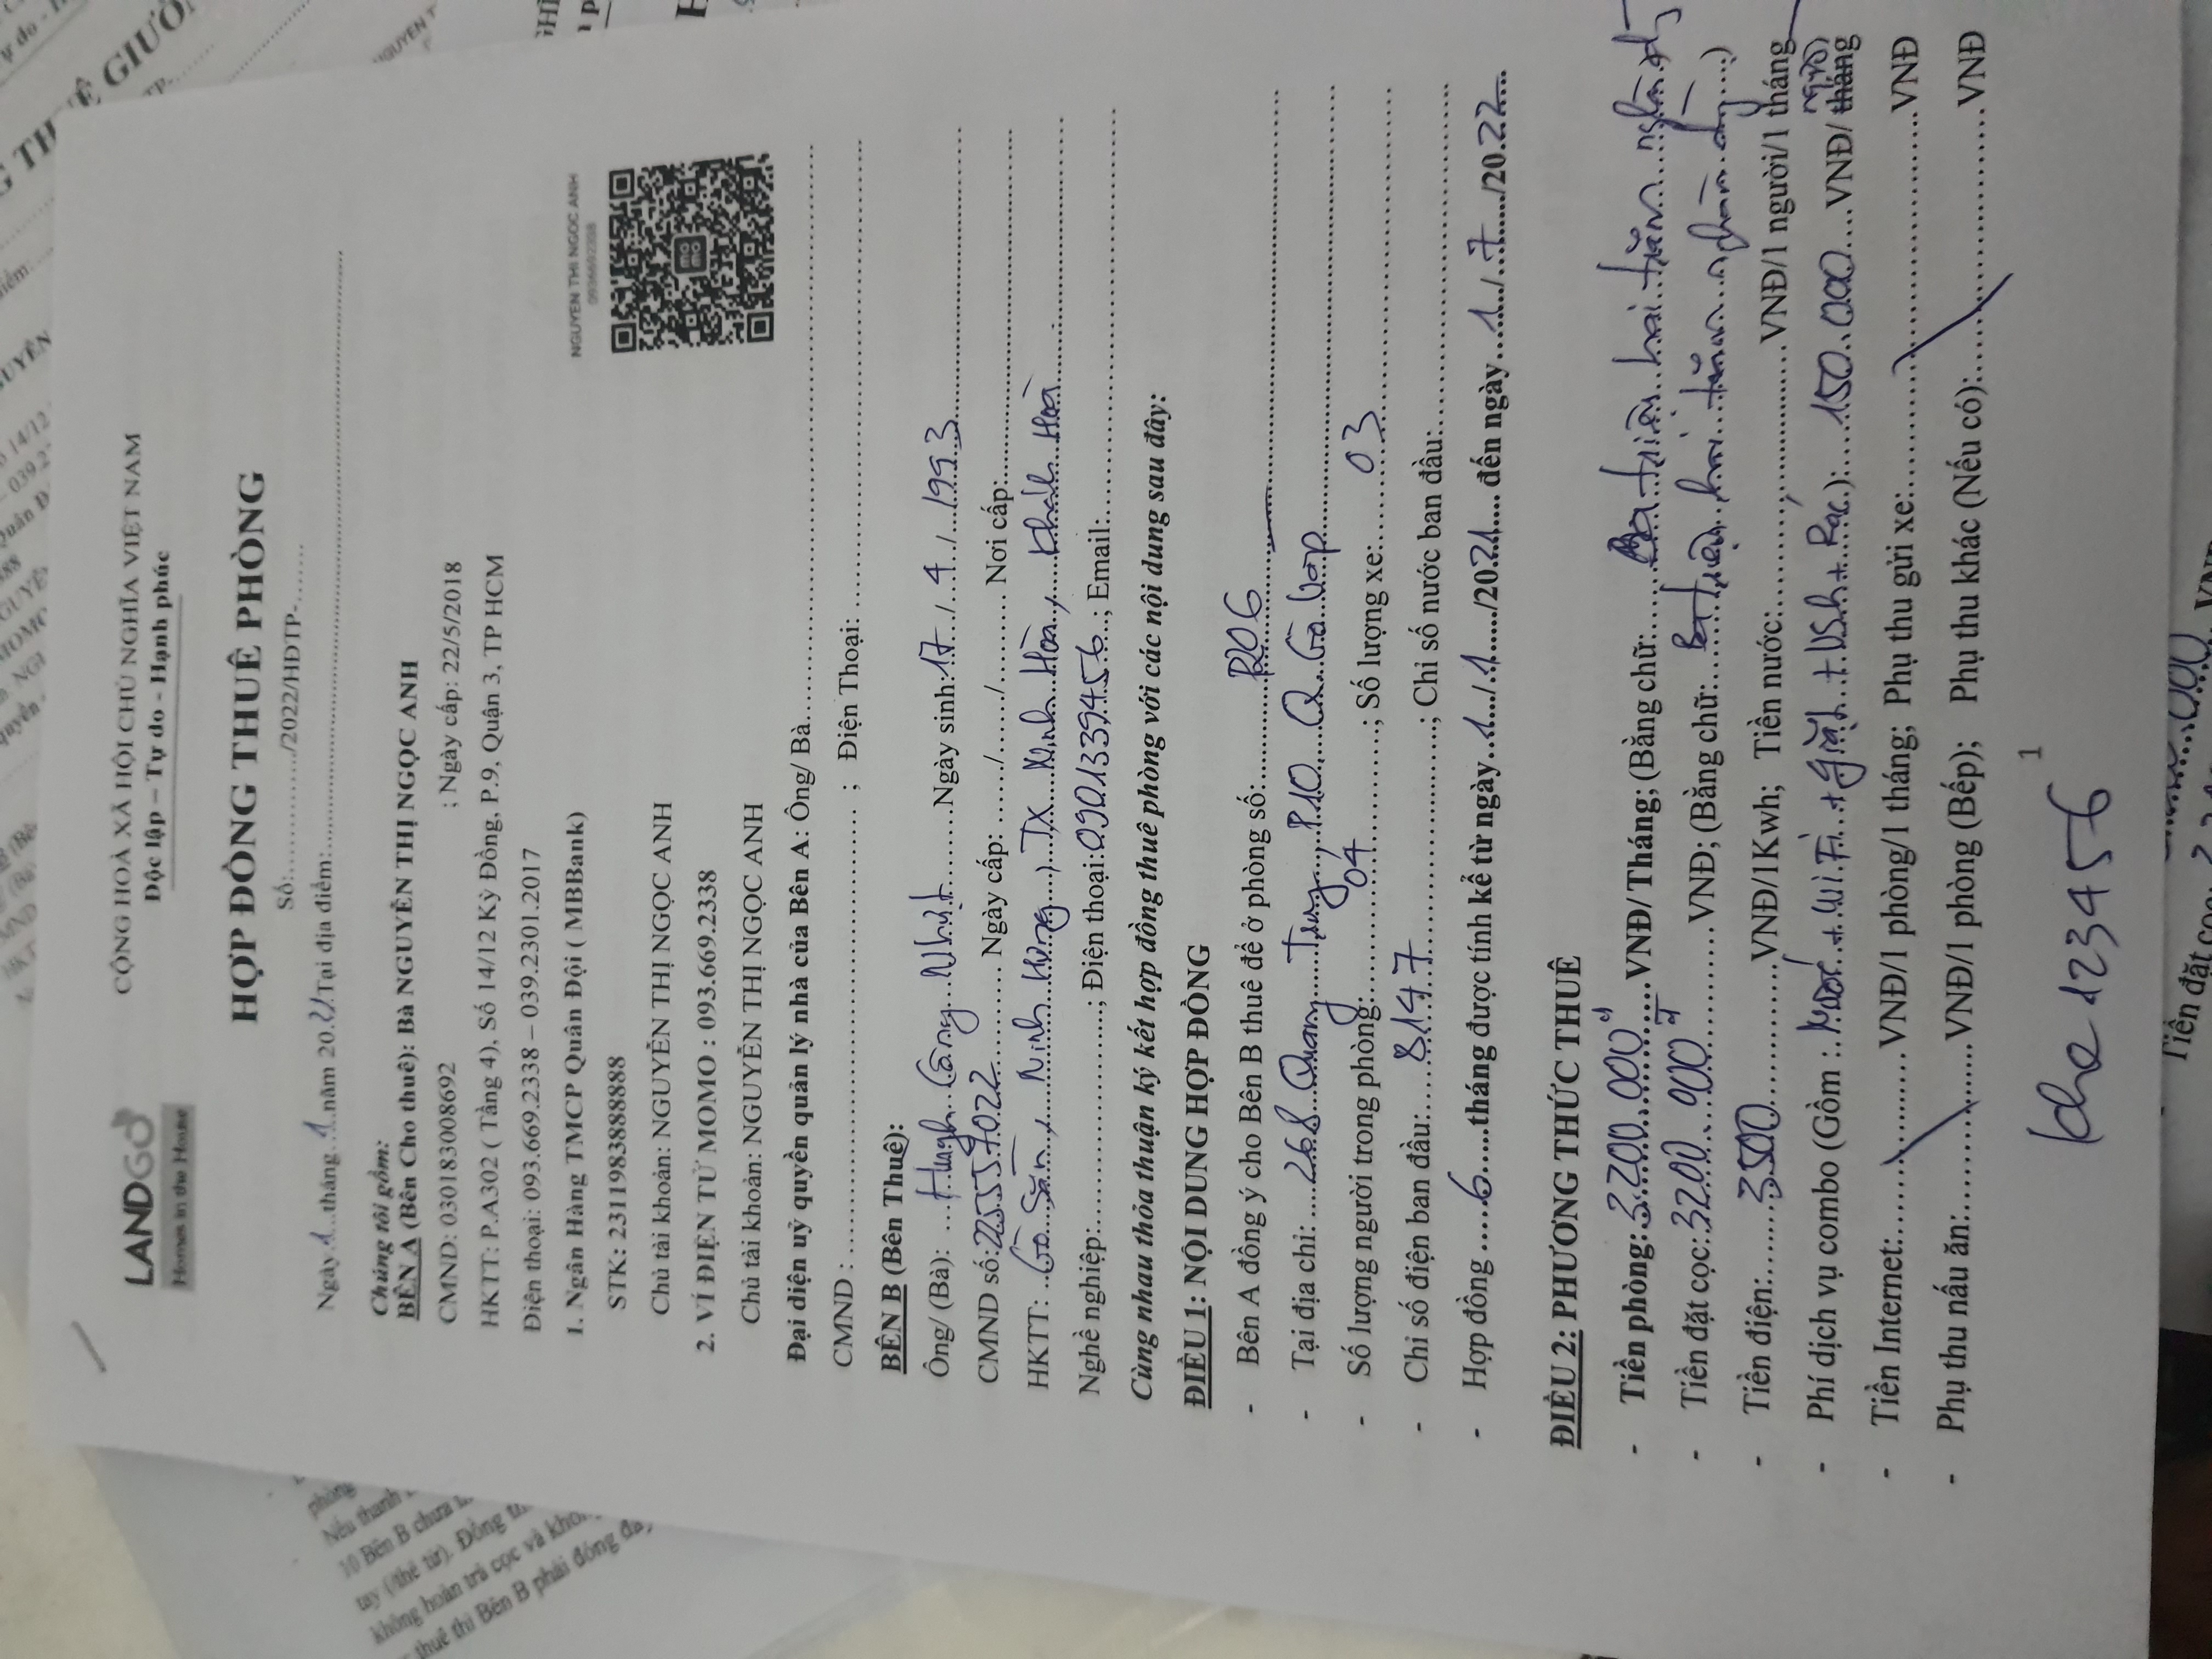 LANDGO
Homes in the House
CỘNG HOÀ XÃ HỘI CHỦ NGHĨA VIỆT NAM
Độc lập – Tự do - Hạnh phúc
HỢP ĐỒNG THUÊ PHÒNG
Số:............./2022/HĐTP-.......
Ngày 1 tháng 1 năm 20 Tại địa điểm:
NGUYEN THI NGOC ANH
0936692338
Chúng tôi gồm:
BÊN A (Bên Cho thuê): Bà NGUYỄN THỊ NGỌC ANH
CMND: 030183008692 ; Ngày cấp: 22/5/2018
HKTT: P.A302 ( Tầng 4), Số 14/12 Kỳ Đồng, P.9, Quận 3, TP HCM
Điện thoại: 093.669.2338 – 039.2301.2017
1. Ngân Hàng TMCP Quân Đội ( MBBank)
STK: 2311983888888
Chủ tài khoản: NGUYỄN THỊ NGỌC ANH
2. VÍ ĐIỆN TỬ MOMO : 093.669.2338
Chủ tài khoản: NGUYỄN THỊ NGỌC ANH
Đại diện uỷ quyền quản lý nhà của Bên A: Ông/ Bà
CMND : ; Điện Thoại:
BÊN B (Bên Thuê):
Ông/ (Bà): Huỳnh Công Nhật Ngày sinh: 17 / 4 / 1993
CMND số: 225557022 Ngày cấp: ....../....../........ Nơi cấp:
HKTT: Gò Sắn, Ninh Hưng, TX Ninh Hòa, Khánh Hoà
Nghề nghiệp: ; Điện thoại: 0901339456 ; Email:
Cùng nhau thỏa thuận ký kết hợp đồng thuê phòng với các nội dung sau đây:
ĐIỀU 1: NỘI DUNG HỢP ĐỒNG
- Bên A đồng ý cho Bên B thuê để ở phòng số: P206
- Tại địa chỉ: 268 Quang Trung, P10 Q. Gò Vấp
- Số lượng người trong phòng: 04 ; Số lượng xe: 03
- Chỉ số điện ban đầu: 8147 ; Chỉ số nước ban đầu:
- Hợp đồng 6 tháng được tính kể từ ngày 1 / 1 /2021 đến ngày 1 / 7 /2022
ĐIỀU 2: PHƯƠNG THỨC THUÊ
- Tiền phòng: 3.200.000đ VNĐ/ Tháng; (Bằng chữ: Ba triệu hai trăm nghìn
- Tiền đặt cọc: 3200 VNĐ; (Bằng chữ: triệu hai trăm )
- Tiền điện: 3.500 VNĐ/1Kwh; Tiền nước: VNĐ/1 người/1 tháng
- Phí dịch vụ combo (Gồm : Nước + Wifi + giặt + VSh + Rác): 150.000 VNĐ/ tháng người
- Tiền Internet: VNĐ/1 phòng/1 tháng; Phụ thu gửi xe: VNĐ
- Phụ thu nấu ăn: VNĐ/1 phòng (Bếp); Phụ thu khác (Nếu có): VNĐ
1
123456